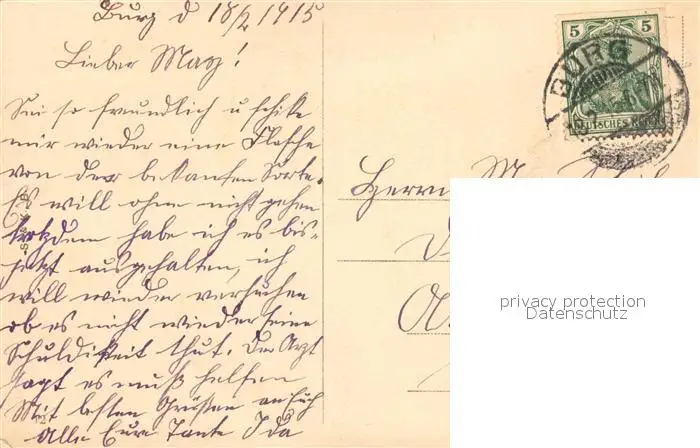 Burg d 18/2 1915
Lieber Max!
Sei so freundlich u schike
mir wieder eine Flasche
von der bekanten Sorte.
Es will ohne nicht gehen
trotzdem habe ich es bis-
jetzt ausgehalten, ich
will wieder versuchen
ob es nicht wieder seine
Schuldikeit thut. Der Arzt
sagt es muß helfen
Mit besten Grüßen an Euch
Alle Eure Tante Ida
5 5
BURG
DEUTSCHES REICH
Herrn
privacy protection
Datenschutz